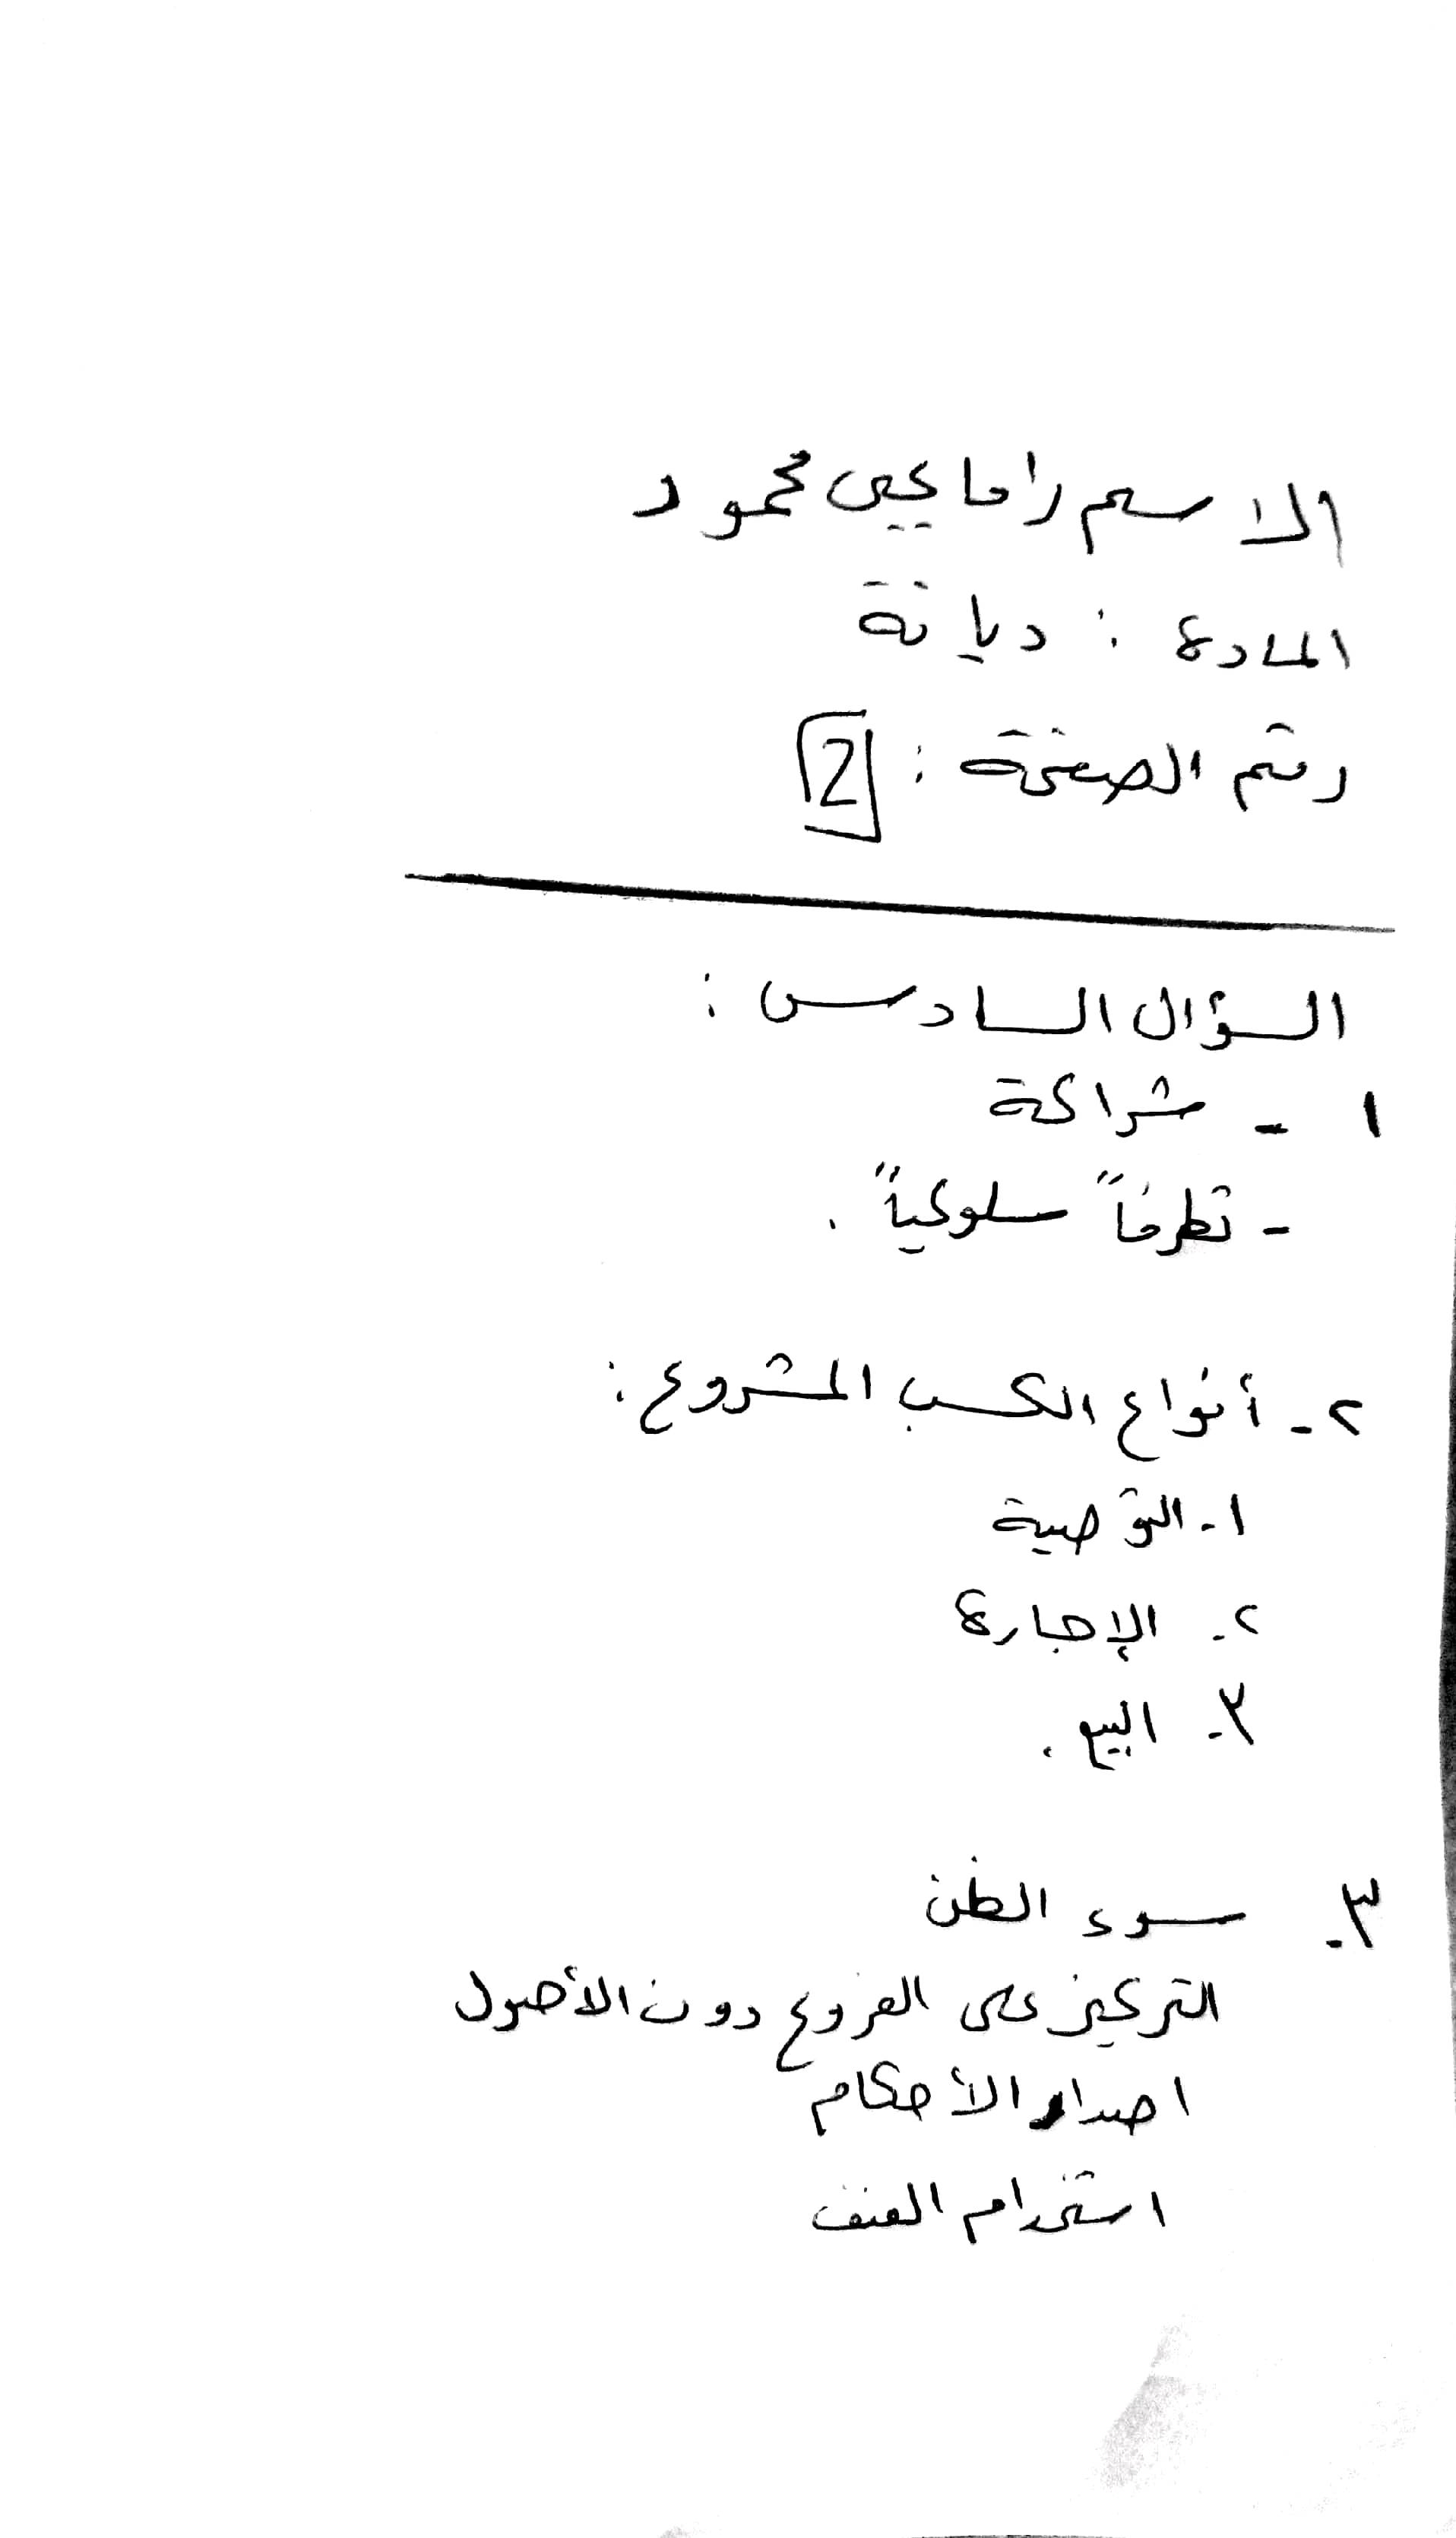 الاسم راما يحيى محمود
المادة : ديانة
رقم الصفحة : 2
السؤال السادس :
١ - شراكة
- تطرفاً سلوكياً .
٢ - أنواع الكسب المشروع :
١ - التوصية
٢ - الإجارة
٣ - البيع .
٣ - سوء الظن
التركيز على الفروع دون الأصول
اصدار الأحكام
استخدام العنف